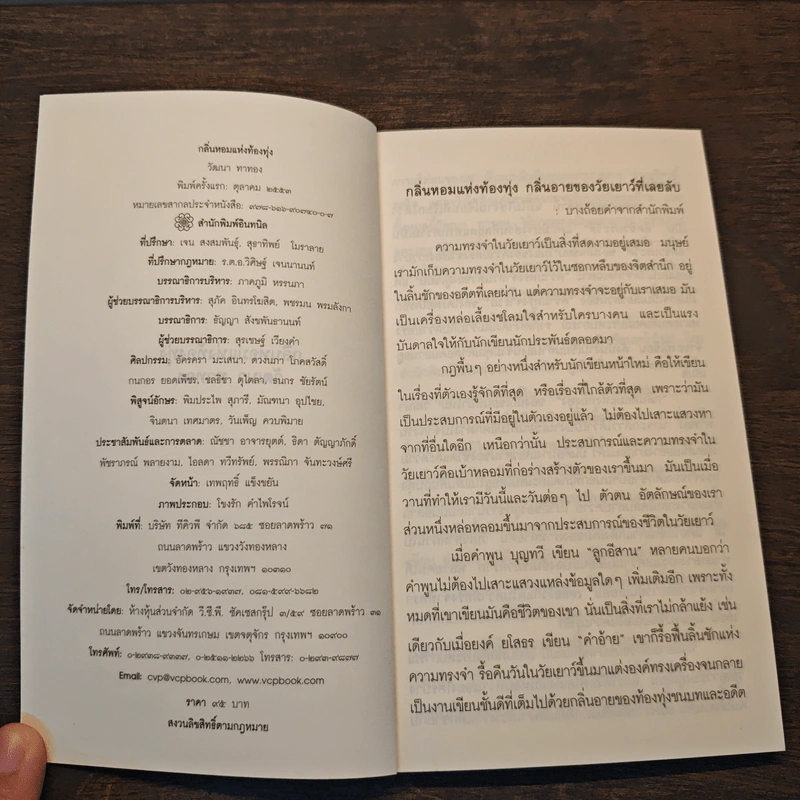 กลิ่นหอมแห่งท้องทุ่ง
วัฒนา ทาทอง
พิมพ์ครั้งแรก: ตุลาคม ๒๕๕๓
หมายเลขสากลประจำหนังสือ: ๙๗๘-๖๑๖-๙๐๓๔๐-๐-๗
สำนักพิมพ์อินทนิล
ที่ปรึกษา: เจน สงสมพันธุ์, สุธาทิพย์ โมราลาย
ที่ปรึกษากฎหมาย: ร.ต.อ.วิศิษฐ์ เจนนานนท์
บรรณาธิการบริหาร: ภาคภูมิ หรรนภา
ผู้ช่วยบรรณาธิการบริหาร: สุภัค อินทรโฆสิต, พชรมน พรมลังกา
บรรณาธิการ: ธัญญา สังขพันธานนท์
ผู้ช่วยบรรณาธิการ: สุรเชษฐ์ เวียงคำ
ศิลปกรรม: อัครครา มะเสนา, ดวงนภา โภคสวัสดิ์
กนกอร ยอดเพ็ชร, ชลธิชา ดุไตลา, ธนกร ชัยรัตน์
พิสูจน์อักษร: พิมประไพ สุภารี, มัณฑนา อุปไชย,
จินตนา เทศมาตร, วันเพ็ญ ควบพิมาย
ประชาสัมพันธ์และการตลาด: ณัชชา อาจารยุตต์, ธิดา ตัญญาภักดิ์
พัชราภรณ์ พลายงาม, ไอลดา ทวีทรัพย์, พรรณิภา จันทะวงษ์ศรี
จัดหน้า: เทพฤทธิ์ แข็งขยัน
ภาพประกอบ: โขงรัก คำไพโรจน์
พิมพ์ที่: บริษัท ทีคิวพี จำกัด ๖๘๕ ซอยลาดพร้าว ๓๑
ถนนลาดพร้าว แขวงวังทองหลาง
เขตวังทองหลาง กรุงเทพฯ ๑๐๓๑๐
โทร/โทรสาร: ๐๒-๙๕๖-๑๙๓๗, ๐๘๑-๕๙๙-๖๖๘๒
จัดจำหน่ายโดย: ห้างหุ้นส่วนจำกัด วี.ซี.พี. ซัคเซสกรุ๊ป ๓/๕๙ ซอยลาดพร้าว ๓๑
ถนนลาดพร้าว แขวงจันทรเกษม เขตจตุจักร กรุงเทพฯ ๑๐๙๐๐
โทรศัพท์: ๐-๒๙๓๘-๙๓๓๗, ๐-๒๕๑๑-๒๒๖๖ โทรสาร: ๐-๒๙๓-๙๘๗๗
Email: cvp@vcpbook.com, www.vcpbook.com
ราคา ๙๕ บาท
สงวนลิขสิทธิ์ตามกฎหมาย
กลิ่นหอมแห่งท้องทุ่ง กลิ่นอายของวัยเยาว์ที่เลยลับ
: บางถ้อยคำจากสำนักพิมพ์
ความทรงจำในวัยเยาว์เป็นสิ่งที่สดงามอยู่เสมอ มนุษย์
เรามักเก็บความทรงจำในวัยเยาว์ไว้ในซอกหลืบของจิตสำนึก อยู่
ในลิ้นชักของอดีตที่เลยผ่าน แต่ความทรงจำจะอยู่กับเราเสมอ มัน
เป็นเครื่องหล่อเลี้ยงชโลมใจสำหรับใครบางคน และเป็นแรง
บันดาลใจให้กับนักเขียนนักประพันธ์ตลอดมา
กฎพื้นๆ อย่างหนึ่งสำหรับนักเขียนหน้าใหม่ คือให้เขียน
ในเรื่องที่ตัวเองรู้จักดีที่สุด หรือเรื่องที่ใกล้ตัวที่สุด เพราะว่ามัน
เป็นประสบการณ์ที่มีอยู่ในตัวเองอยู่แล้ว ไม่ต้องไปเสาะแสวงหา
จากที่อื่นใดอีก เหนือกว่านั้น ประสบการณ์และความทรงจำใน
วัยเยาว์คือเบ้าหลอมที่ก่อร่างสร้างตัวของเราขึ้นมา มันเป็นเมื่อ
วานที่ทำให้เรามีวันนี้และวันต่อๆ ไป ตัวตน อัตลักษณ์ของเรา
ส่วนหนึ่งหล่อหลอมขึ้นมาจากประสบการณ์ของชีวิตในวัยเยาว์
เมื่อคำพูน บุญทวี เขียน “ลูกอีสาน” หลายคนบอกว่า
คำพูนไม่ต้องไปเสาะแสวงแหล่งข้อมูลใดๆ เพิ่มเติมอีก เพราะทั้ง
หมดที่เขาเขียนมันคือชีวิตของเขา นั่นเป็นสิ่งที่เราไม่กล้าแย้ง เช่น
เดียวกับเมื่อยงค์ ยโสธร เขียน “คำอ้าย” เขาก็รื้อฟื้นลิ้นชักแห่ง
ความทรงจำ รื้อคืนวันในวัยเยาว์ขึ้นมาแต่งองค์ทรงเครื่องจนกลาย
เป็นงานเขียนชั้นดีที่เต็มไปด้วยกลิ่นอายของท้องทุ่งชนบทและอดีต